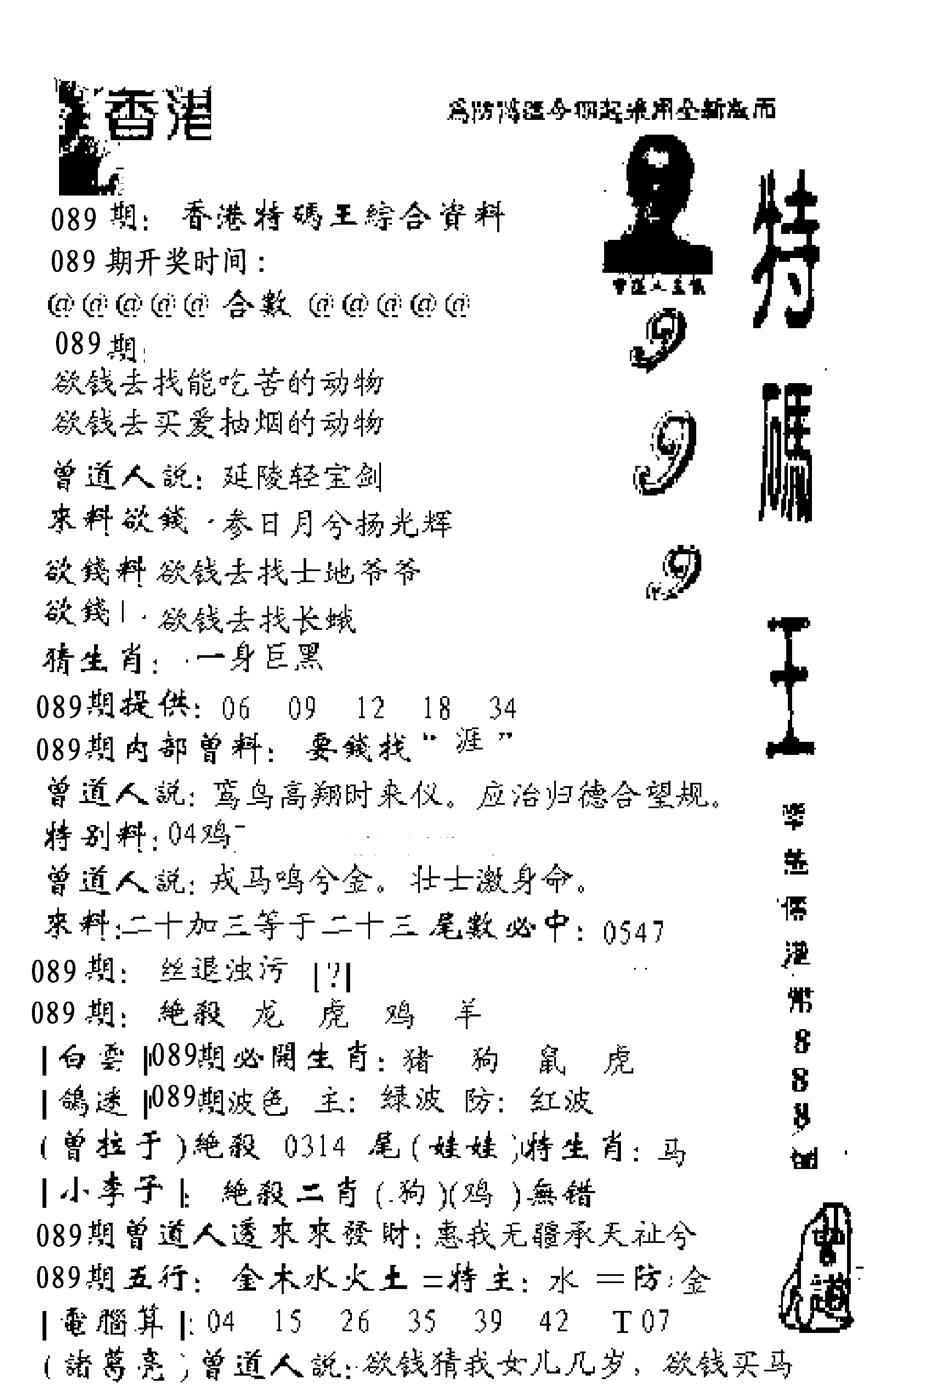 香港
089期：香港特碼王綜合資料
089期开奖时间：
@@@@@合數@@@@@
089期：
欲钱去找能吃苦的动物
欲钱去买爱抽烟的动物
曾道人説：延陵轻宝剑
來料欲錢·参日月兮扬光辉
欲錢料 欲钱去找士地爷爷
欲錢|·欲钱去找长蛾
猜生肖：·一身巨黑
089期提供：06 09 12 18 34
089期内部曾料：要錢找“涯”
曾道人説：鸾鸟高翔时来仪。应治归德合望规。
特别料：04鸡
曾道人説：戎马鸣兮金。壮士激身命。
來料：二十加三等于二十三 尾數必中：0547
089期：丝退浊污 |?|
089期：絶殺 龙 虎 鸡 羊
|白雲|089期必開生肖：猪 狗 鼠 虎
|鴿迷|089期波色 主：绿波 防：红波
(曾拉于)絶殺 0314 尾(娃娃)特生肖：马
|小李子|：絶殺二肖(狗)(鸡)無错
089期曾道人透來來發財：惠我无疆承天祉兮
089期五行：金木水火土=特主：水 =防：金
|電腦算|：04 15 26 35 39 42 T07
(諸葛亮)曾道人説：欲钱猜我女儿几岁，欲钱买马
為防 今期起采用全新版面
曾道人主
9
9
9
特
碼
王
港
8
8
8
曾道